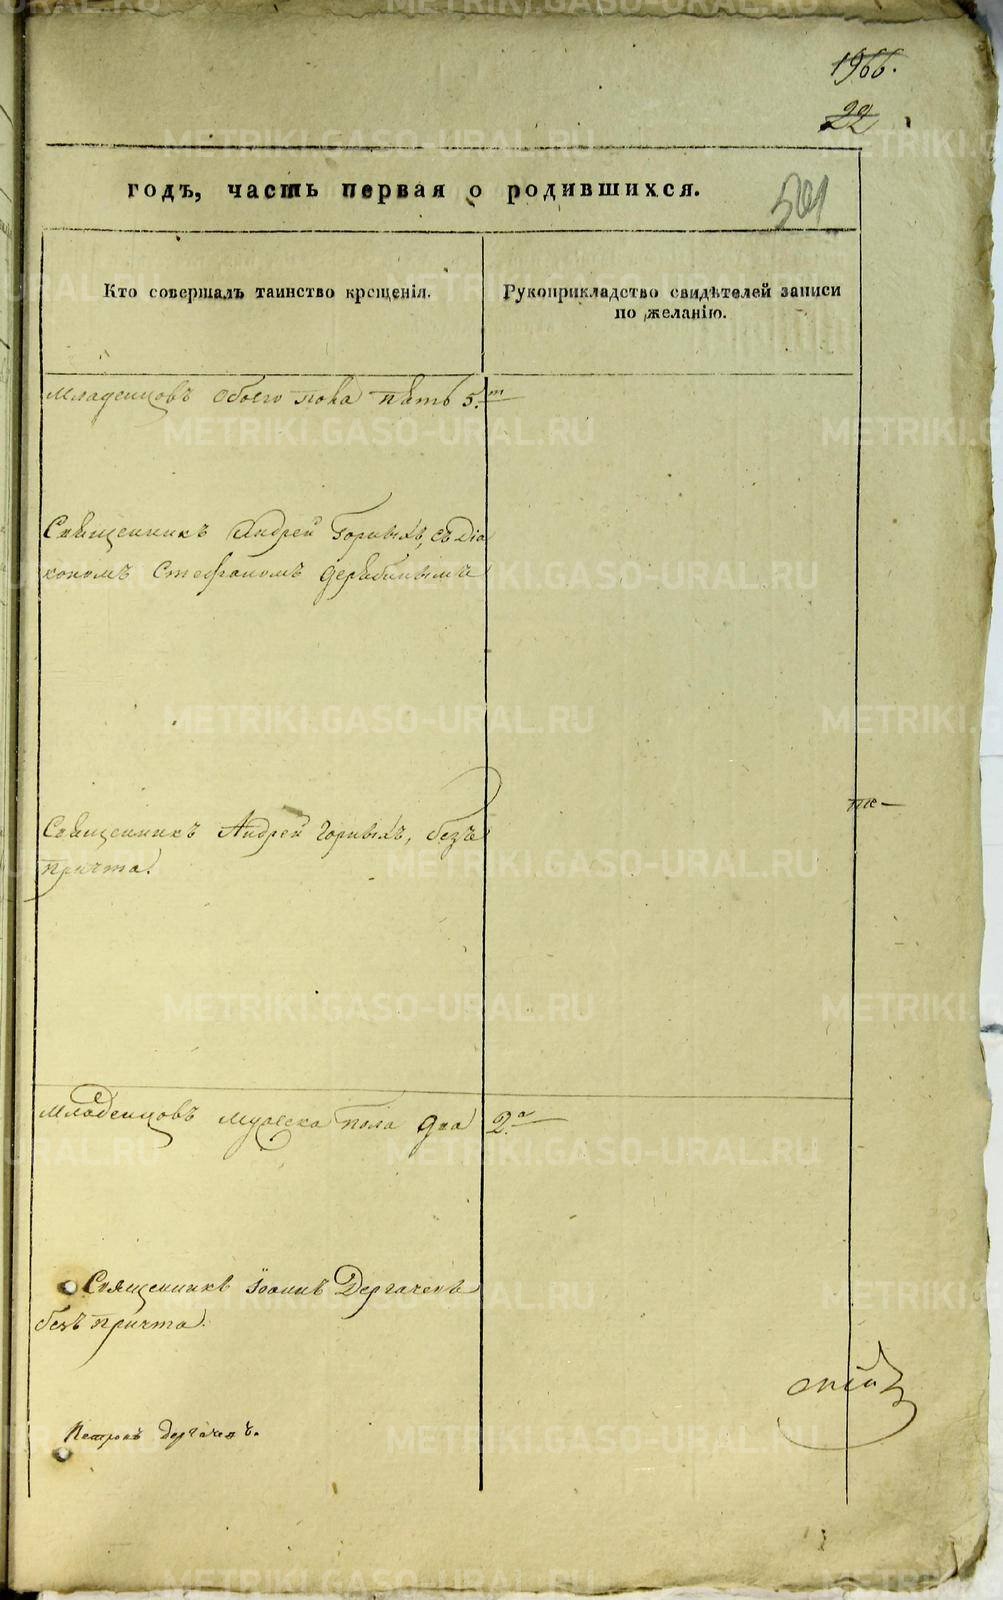 1966.
22
годъ, часть первая о родившихся.
501
Кто совершалъ таинство крещенія.
Рукоприкладство свидѣтелей записи
по желанію.
Младенцовъ обоего пола пять 5.
Священникъ Андрей Горныхъ, съ Діа
кономъ Стефаномъ Дерябинымъ
Священникъ Андрей Горныхъ, безъ
причта.
Младенцовъ мужеска пола два 2.а
Священникъ Іоаннъ Дергачевъ
безъ причта.
Петровъ Дергачевъ.
METRIKI.GASO-URAL.RU